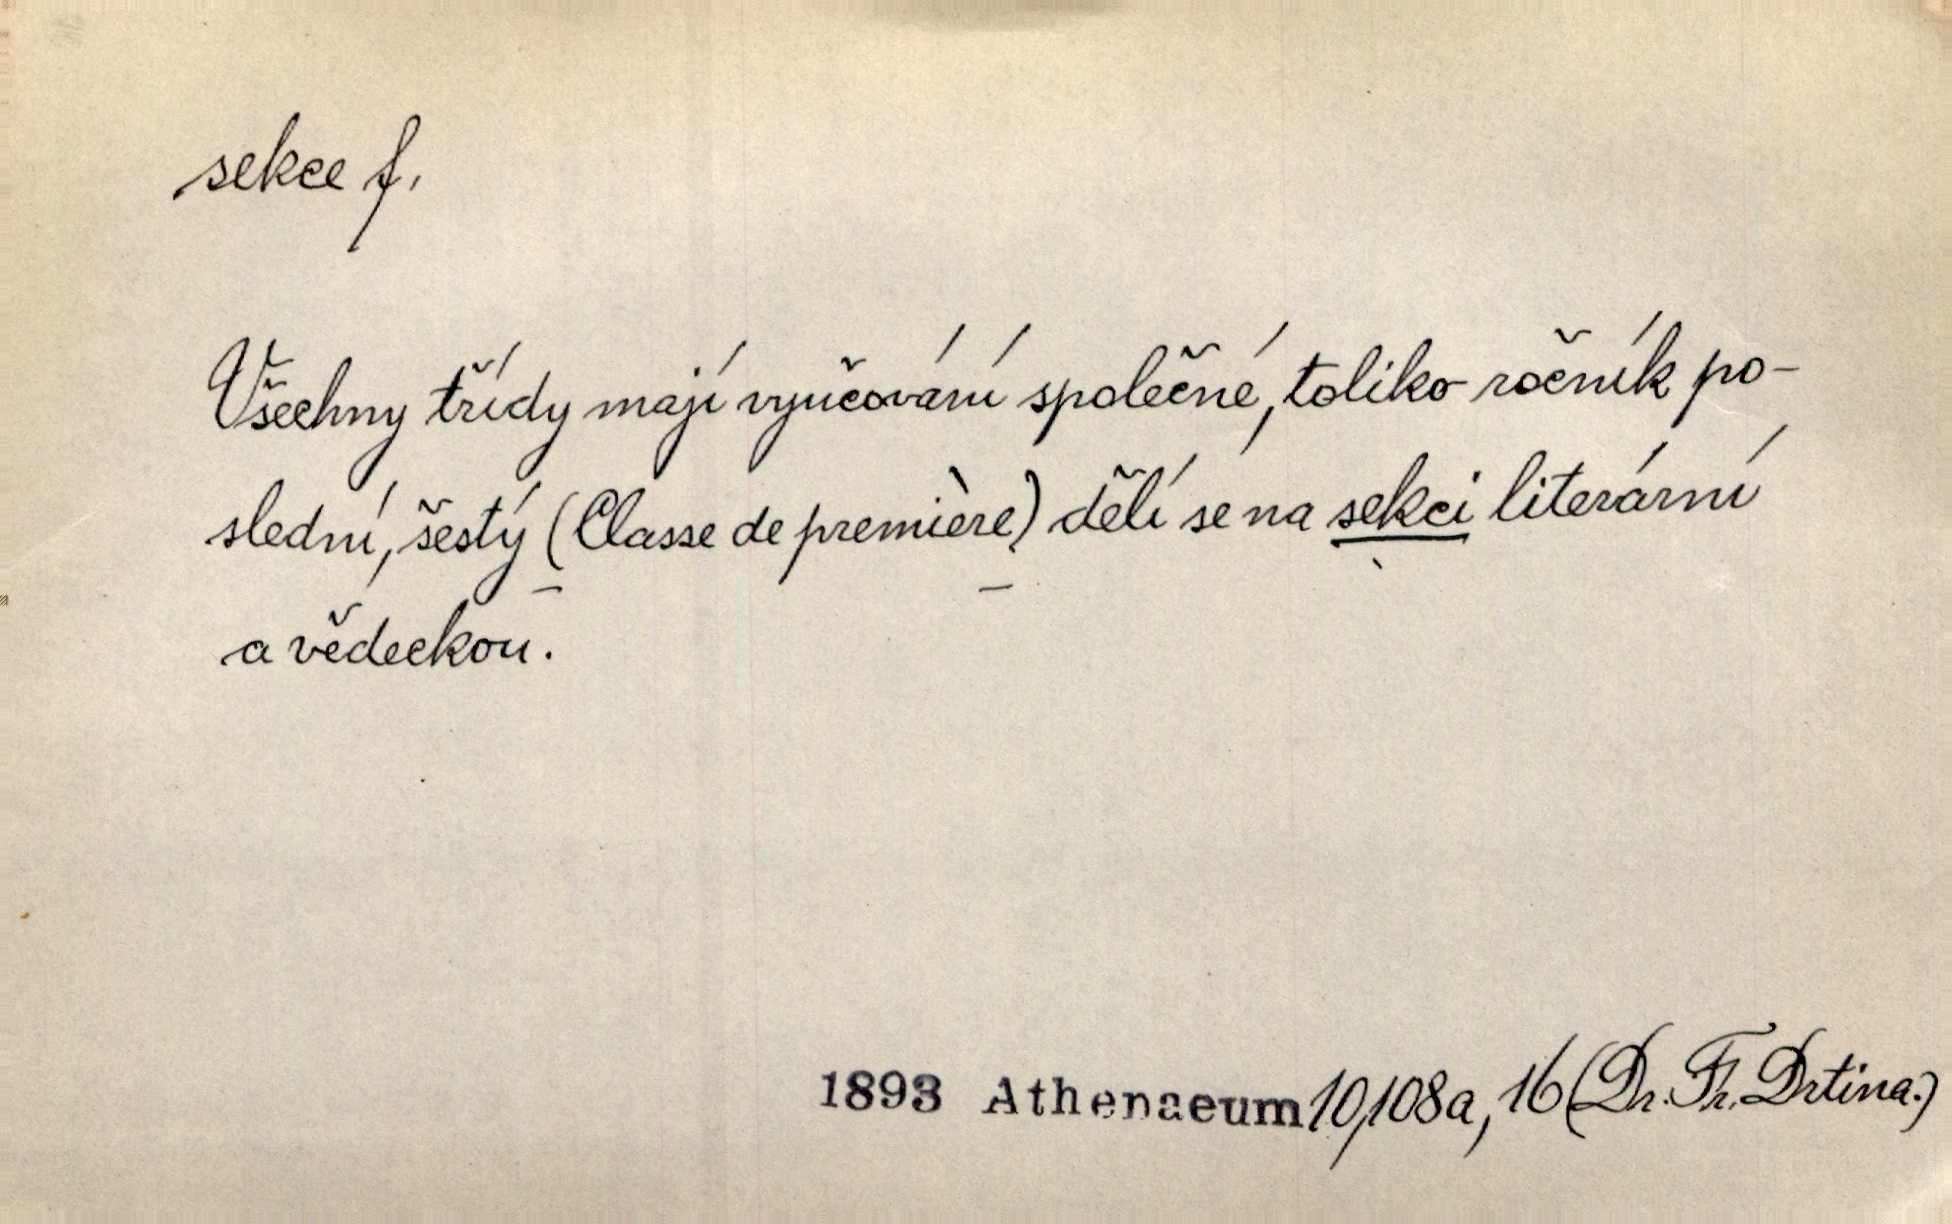 sekce f.
Všechny třídy mají vyučování společné, toliko ročník po-
slední, šestý (Classe de première) dělí se na sekci literární
a vědeckou.
1893 Athenaeum 10,108a, 16 (Dr. Fr. Drtina.)